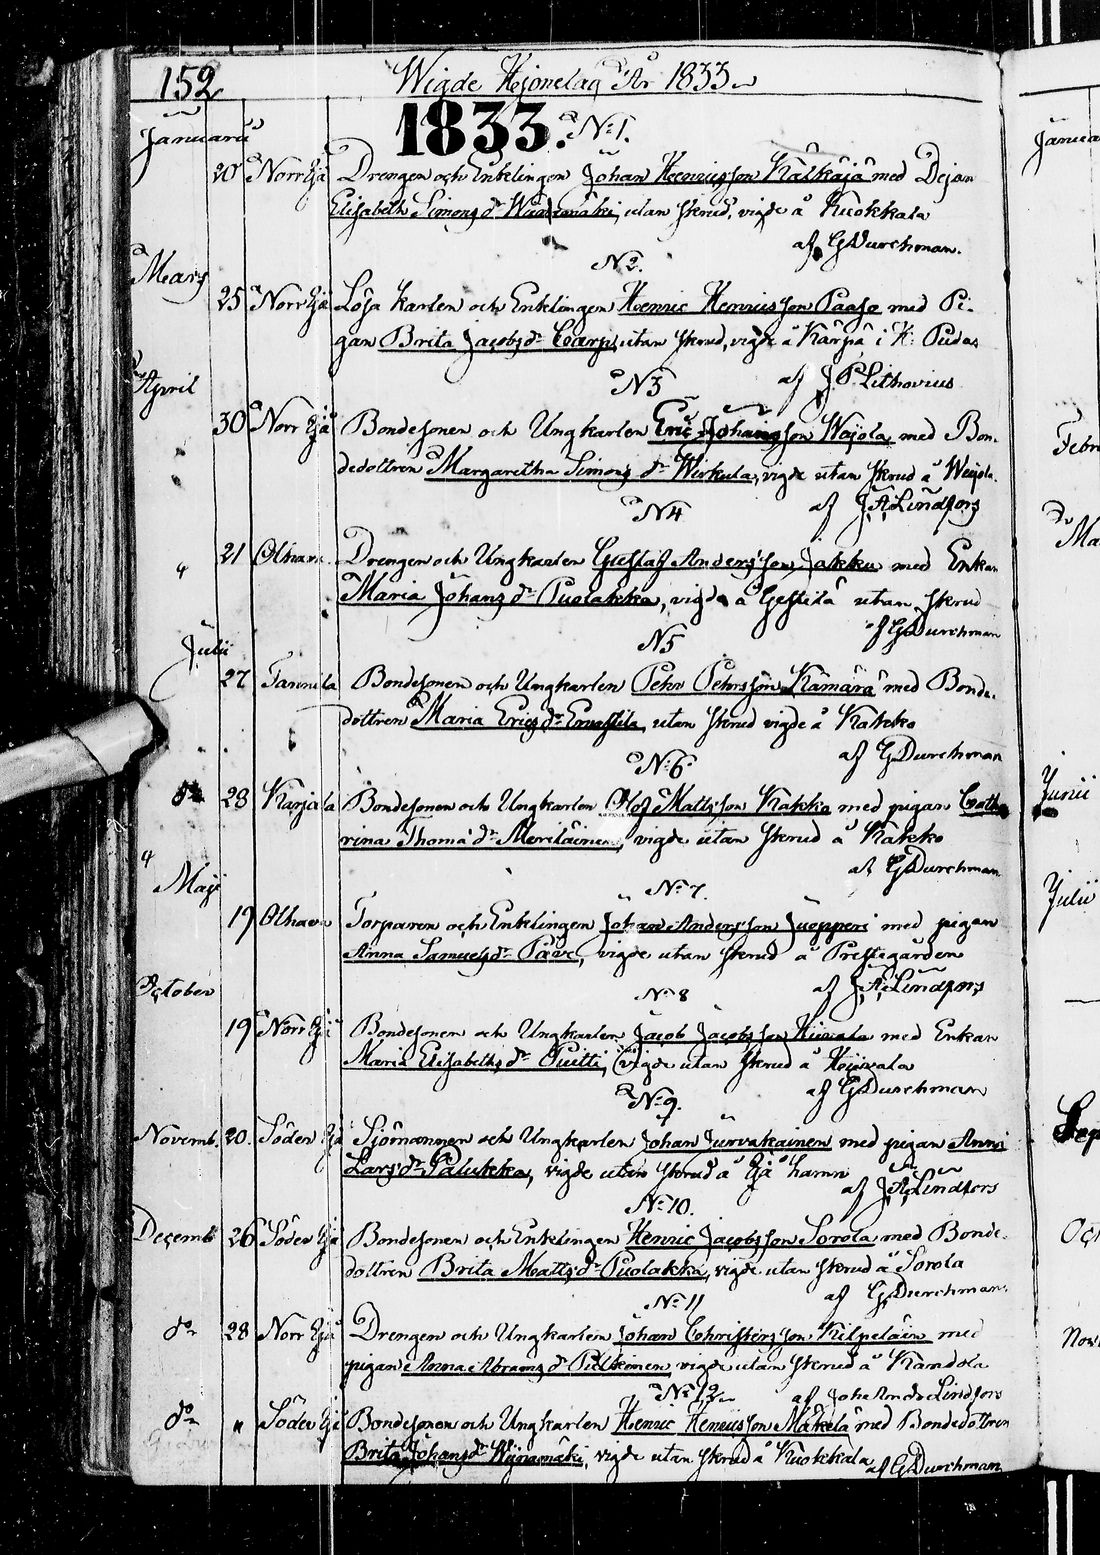 152 Wigde Hjonelag År 1833
1833. No 1.
Januarii
20 Norr Ijå Drengen och Enklingen Johan Henricsson Kälkäjä med Dejan
Elisabeth Simons dr utan skrud, vigde å Kuokkala
af G Durchman.
No 2.
Mars
25 Norr Ijå Lösa karlen och Enklingen Henric Henricsson Paaso med Pi-
gan Brita Jacobs dr Carp, utan skrud, vigde å Kärpä i K: Pudas
af J. P. Lithovius
No 3
April
30 Norr Ijå Bondesonen och Ungkarlen Eric Johansson Wejola med Bon-
dedottren Margaretha Simons dr Wirkula, vigde utan skrud å Weijola.
af J A Lindfors
No 4
21 Olhava Drengen och Ungkarlen Gustaf Andersson Jakku med Enkan
Maria Johans dr Puolakka, vigde å Gestilä utan skrud
af G Durchman
No 5
Julii
27 Tannila Bondesonen och Ungkarlen Pehr Pehrsson Kämärä med Bonde-
dottren Maria Erics dr utan skrud vigde å Kakko
af G Durchman
No 6
do 28 Karjala Bondesonen och Ungkarlen Olof Mattsson Kakko med pigan Catha
rina Thomæ dr Meriläinen, vigde utan skrud å Kakko
af G Durchman
No 7.
Maji
19 Olhava Torparen och Enklingen Johan Andersson Juopperi med pigan
Anna Samuels dr Päve, vigde utan skrud å Prestgården
af J A Lindfors
No 8
October
19 Norr Ijå Bondesonen och Ungkarlen Jacob Jacobsson Hiivala med Enkan
Maria Elisabeths dr vigde utan skrud å Hiivala
af G Durchman
No 9.
Novemb. 20. Söder Ijå Sjömannen och Ungkarlen Johan Jurvakainen med pigan Anna
Lars dr Palukka, vigde utan skrud å Ijå hamn
af J A Lindfors
No 10.
Decemb 26 Söder Ijå Bondesonen och Enklingen Henric Jacobsson Sorola med Bonde-
dottren Brita Matts dr Puolakka, vigde utan skrud å Sorola
af G Durchman.
No 11
do 28 Norr Ijå Drengen och Ungkarlen Johan Christersson Kilpeläin med
pigan Anna Abrams dr vigde utan skrud å Kandola
No 12 af Joh: And: Lindfors
do " Söder Ijå Bondesonen och Ungkarlen Henric Henricsson Mäkelä med Bondedottren
Brita Johans dr Wiinamäki, vigde utan skrud å Kuokkala af G Durchman
Januar
Febr
Ma
Junii
Julii
Sep
Oct
Nov